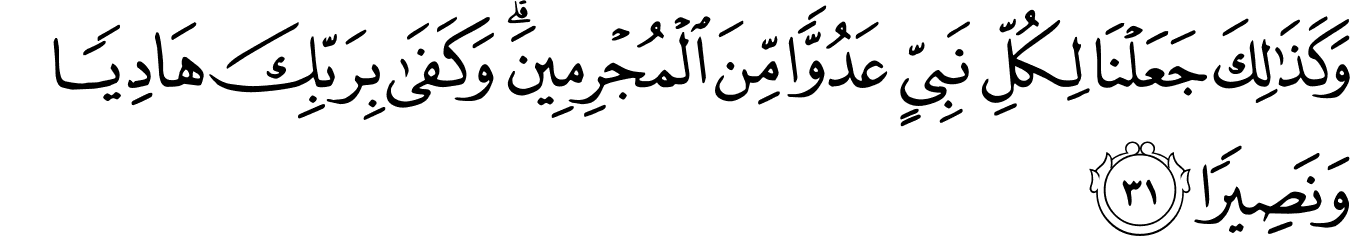 وَكَذَٰلِكَ جَعَلْنَا لِكُلِّ نَبِيٍّ عَدُوًّا مِّنَ ٱلْمُجْرِمِينَ ۗ وَكَفَىٰ بِرَبِّكَ هَادِيًا
وَنَصِيرًا ٣١